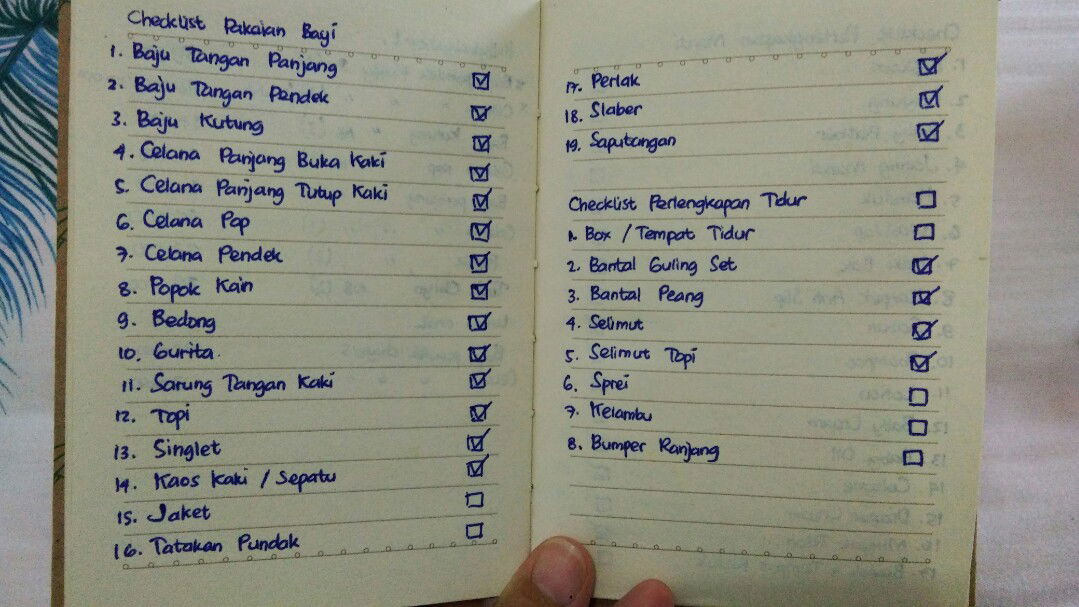 Checklist Pakaian Bayi
1. Baju Tangan Panjang
2. Baju Tangan Pendek
3. Baju Kutung
4. Celana Panjang Buka Kaki
5. Celana Panjang Tutup Kaki
6. Celana Pop
7. Celana Pendek
8. Popok Kain
9. Bedong
10. Gurita
11. Sarung Tangan Kaki
12. Topi
13. Singlet
14. Kaos Kaki / Sepatu
15. Jaket
16. Tatakan Pundak
17. Perlak
18. Slaber
19. Saputangan
Checklist Perlengkapan Tidur
1. Box / Tempat Tidur
2. Bantal Guling Set
3. Bantal Peang
4. Selimut
5. Selimut Topi
6. Sprei
7. Kelambu
8. Bumper Ranjang